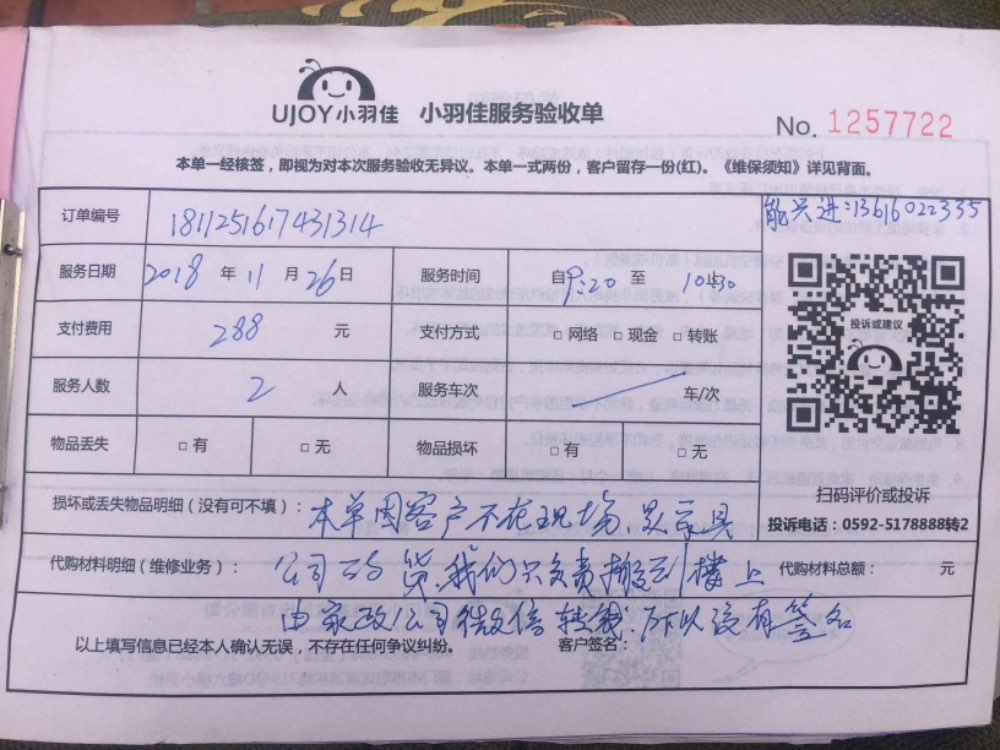 UJOY小羽佳 小羽佳服务验收单
No. 1257722
本单一经核签，即视为对本次服务验收无异议。本单一式两份，客户留存一份(红)。《维保须知》详见背面。
订单编号 1811251617431314
熊兴进:13616022335
服务日期 2018 年 11 月 26 日 服务时间 自 9:20 至 10:30
支付费用 288 元 支付方式 □ 网络 □ 现金 □ 转账
投诉或建议
服务人数 2 人 服务车次 车/次
物品丢失 □ 有 □ 无 物品损坏 □ 有 □ 无
扫码评价或投诉
损坏或丢失物品明细（没有可不填）： 本单因客户不在现场、是家具
投诉电话：0592-5178888转2
代购材料明细（维修业务）： 公司的货，我们只负责搬到楼上 代购材料总额： 元
由家政公司微信转钱，所以没有签名
以上填写信息已经本人确认无误，不存在任何争议纠纷。 客户签名：